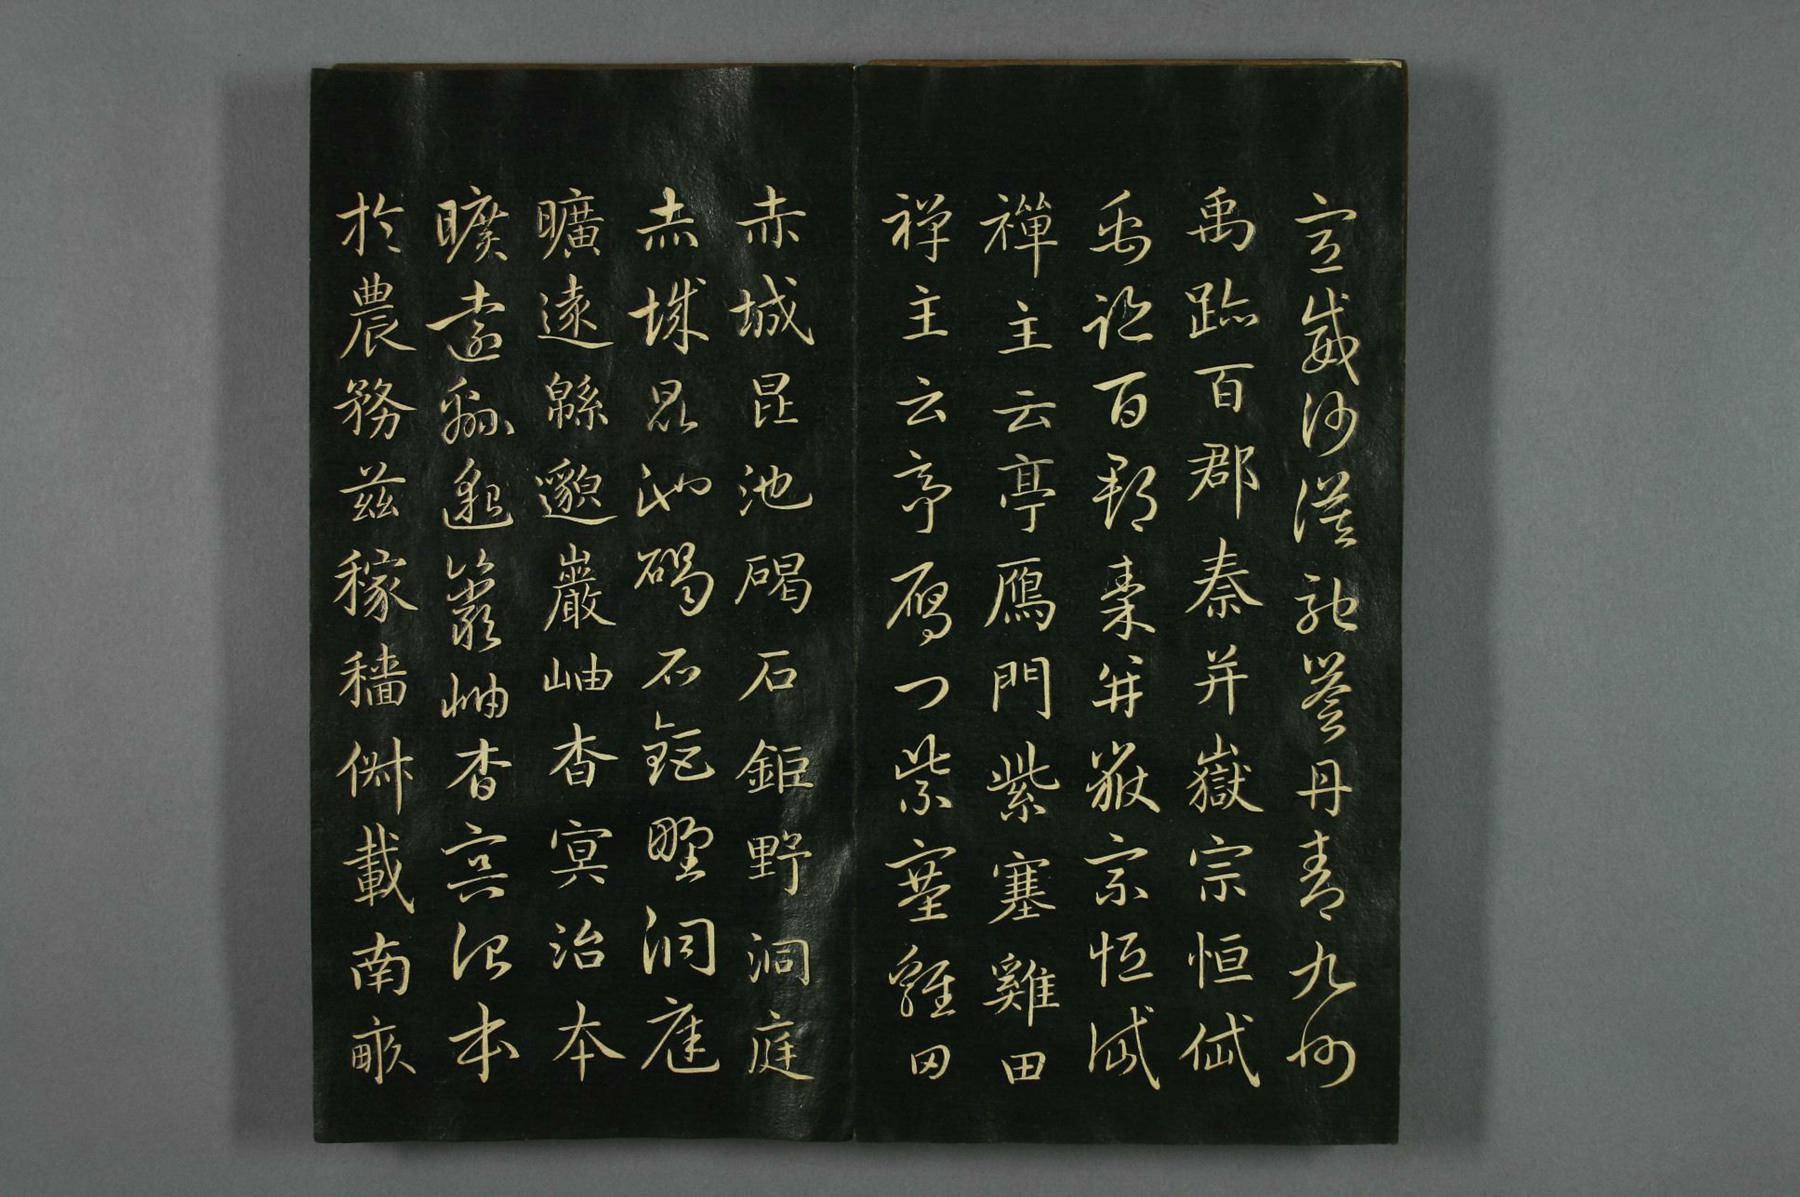 宣威沙漠馳譽丹青九州
禹跡百郡秦并嶽宗恒岱
禹跡百郡秦并嶽宗恒岱
禪主云亭鴈門紫塞雞田
禅主云亭鴈門紫塞雞田
赤城昆池碣石鉅野洞庭
赤城昆池碣石鉅野洞庭
曠遠緜邈巖岫杳冥治本
曠遠緜邈巖岫杳冥治本
於農務茲稼穡俶載南畝